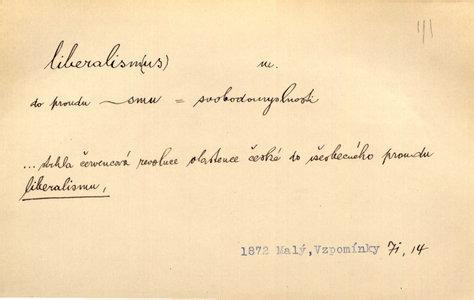 liberalism(us) m.
do proudu ~smu = svobodomyslnosti
...strhla červencová revoluce vlastence české do všeobecného proudu
liberalismu,
1872 Malý, Vzpomínky 14